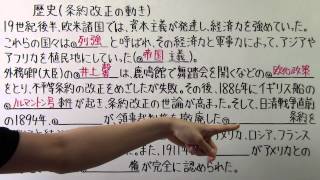 歴史(条約改正の動き)
19世紀後半、欧米諸国では、資本主義が発達し、経済力を強めていた。
これらの国々は列強と呼ばれ、その経済力と軍事力によって、アジアや
アフリカを植民地にしていた(帝国主義)。
外務卿(大臣)の井上馨は、鹿鳴館で舞踏会を開くなどの欧化政策
をとり、不平等条約の改正をめざしたが失敗。その後、1886年にイギリス船の
ノルマントン号事件が起き、条約改正の世論が高まった。そして、日清戦争直前
の1894年、が領事裁判権を撤廃した条約を
アメリカ、ロシア、フランス
また、1911年 がアメリカとの
権が完全に認められた。